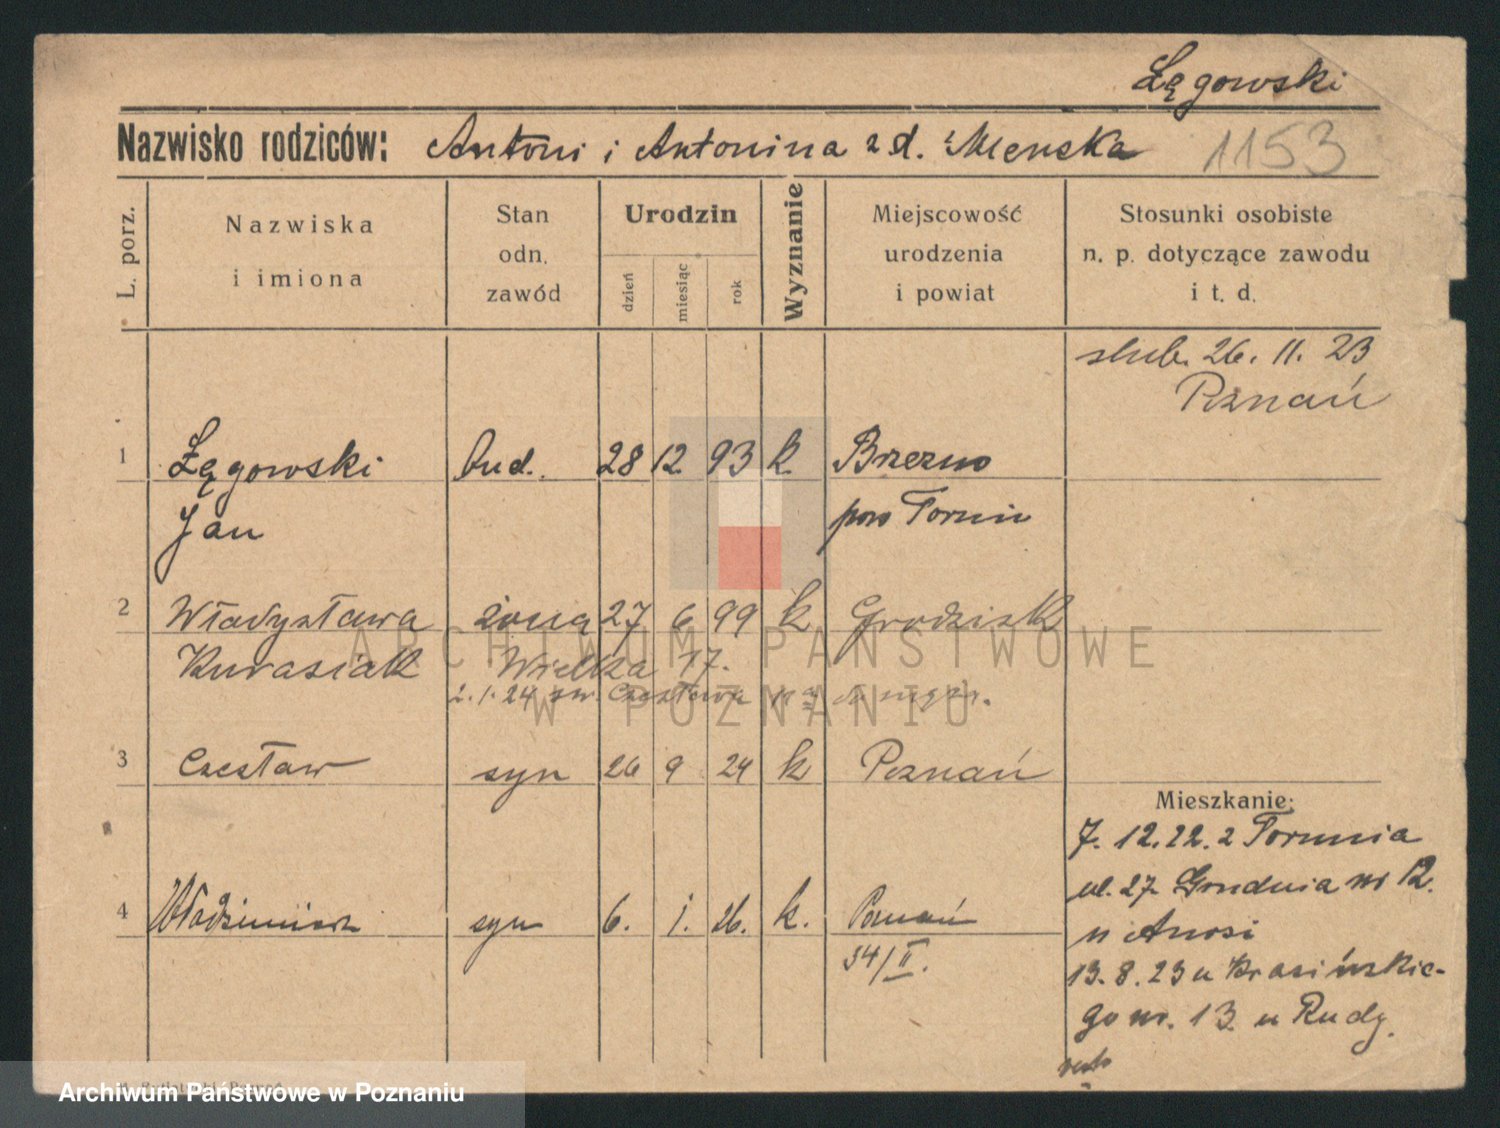 Łęgowski
Nazwisko rodziców: Antoni i Antonina z d. Mienska 1153
L. porz.
Nazwiska
i imiona
Stan
odn.
zawód
Urodzin
dzień
miesiąc
rok
Wyznanie
Miejscowość
urodzenia
i powiat
Stosunki osobiste
n. p. dotyczące zawodu
i t. d.
slub. 26. 11. 23
Poznań
1 Łęgowski bud. 28 12 93 k Brzezno
Jan pow Toruń
2 Władysława żona 27 6 99 k Grodzisk
Kurasiak Wielka 17.
2.1.24 zw. Czesława
3 Czesław syn 26 9 24 k Poznań
Mieszkanie:
7. 12. 22. z Torunia
ul. 27 Grudnia nr 12.
4 Włodzimierz syn 6. 1. 26. k. Poznań
u Anosi
34/II.
13. 8. 23 u Krasińskie-
go nr. 13 u Rudy
verte
ARCHIWUM PAŃSTWOWE
W POZNANIU
Archiwum Państwowe w Poznaniu